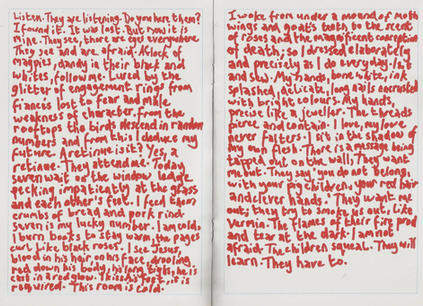 Listen. They are listening. Do you hear them?
I found it. It was lost. But now it is
mine. They see, there are eyes everywhere.
They see and are afraid. A flock of
magpies, dandy in their black and
whites, follow me. Lured by the
glitter of engagement rings from
fiancés lost to fear and male
weakness of character. From the
rooftops the birds descend in random
numbers and from this I deduce my
future. A retinue is it? Yes, a
retinue. They attend me. Today
seven wait on the window ledge
pecking impatiently at the glass
and each other's feet. I feed them
crumbs of bread and pork rind.
Seven is my lucky number. I am cold.
I burn books to stay warm, the pages
curl like black roses. I see Jesus,
blood in his hair, on his face, drooling
red down his body, his long thighs, he is
cast in a red glow. I kiss his feet, it is
required. This room is cold.
I woke from under a mound of moth
wings and goat's teeth to the scent
of roses and the magnificent corruption
of death, so I dressed elaborately
and precisely as I do everyday. I sit
and sew. My hands, bone white, ink
splashed, delicate, long nails encrusted
with bright colours. My hands,
precise like a jeweller. The threads
pierce and contain. I love, my love
never falters. I sit in the shadow of
my own flesh. There is a message being
tapped out on the wall; They want
me out. They say, you do not belong,
with your pig children, your red hair
and clever hands. They want me
out; they try to smoke us out. Like
vermin. The flames of their fire prod
and tear at the dark. I am not
afraid. The children squeal. They will
learn. They have to.